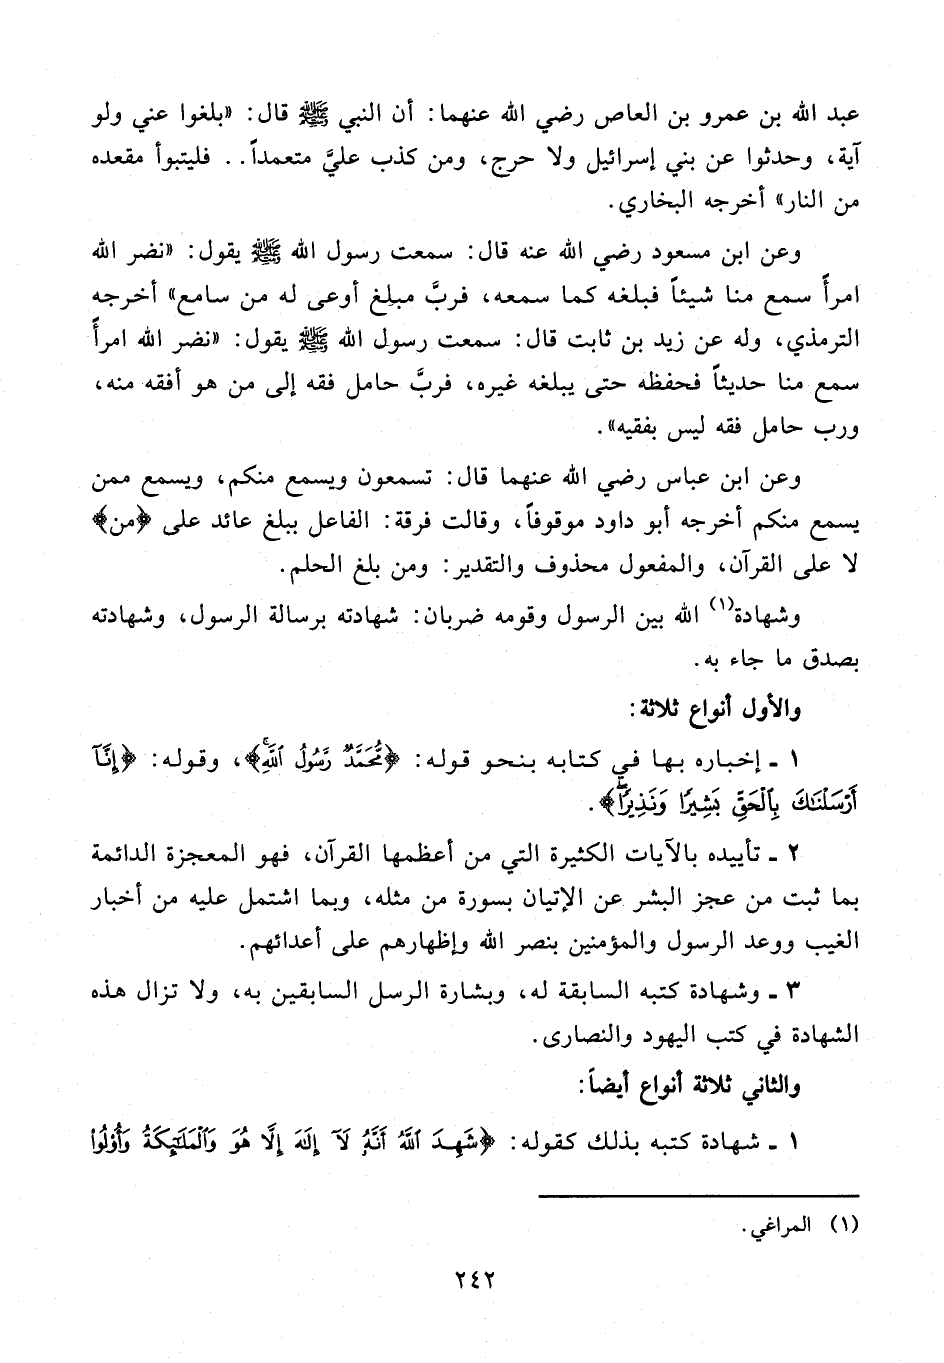 عبد الله بن عمرو بن العاص رضي الله عنهما: أن النبي ﷺ قال: «بلغوا عني ولو
آية، وحدثوا عن بني إسرائيل ولا حرج، ومن كذب عليَّ متعمداً.. فليتبوأ مقعده
من النار» أخرجه البخاري.
وعن ابن مسعود رضي الله عنه قال: سمعت رسول الله ﷺ يقول: «نضر الله
امرأً سمع منا شيئاً فبلغه كما سمعه، فربَّ مبلغ أوعى له من سامع» أخرجه
الترمذي، وله عن زيد بن ثابت قال: سمعت رسول الله ﷺ يقول: «نضر الله امرأً
سمع منا حديثاً فحفظه حتى يبلغه غيره، فربَّ حامل فقه إلى من هو أفقه منه،
ورب حامل فقه ليس بفقيه».
وعن ابن عباس رضي الله عنهما قال: تسمعون ويسمع منكم، ويسمع ممن
يسمع منكم أخرجه أبو داود موقوفاً، وقالت فرقة: الفاعل ببلغ عائد على ﴿من﴾
لا على القرآن، والمفعول محذوف والتقدير: ومن بلغ الحلم.
وشهادة(١) الله بين الرسول وقومه ضربان: شهادته برسالة الرسول، وشهادته
بصدق ما جاء به.
والأول أنواع ثلاثة:
١ - إخباره بها في كتابه بنحو قوله: ﴿مُّحَمَّدٌ رَّسُولُ ٱللَّهِ﴾، وقوله: ﴿إِنَّآ
أَرْسَلْنَٰكَ بِٱلْحَقِّ بَشِيرًا وَنَذِيرًا﴾.
٢ - تأييده بالآيات الكثيرة التي من أعظمها القرآن، فهو المعجزة الدائمة
بما ثبت من عجز البشر عن الإتيان بسورة من مثله، وبما اشتمل عليه من أخبار
الغيب ووعد الرسول والمؤمنين بنصر الله وإظهارهم على أعدائهم.
٣ - وشهادة كتبه السابقة له، وبشارة الرسل السابقين به، ولا تزال هذه
الشهادة في كتب اليهود والنصارى.
والثاني ثلاثة أنواع أيضاً:
١ - شهادة كتبه بذلك كقوله: ﴿شَهِدَ ٱللَّهُ أَنَّهُۥ لَآ إِلَٰهَ إِلَّا هُوَ وَٱلْمَلَٰٓئِكَةُ وَأُو۟لُوا۟
(١) المراغي.
٢٤٢